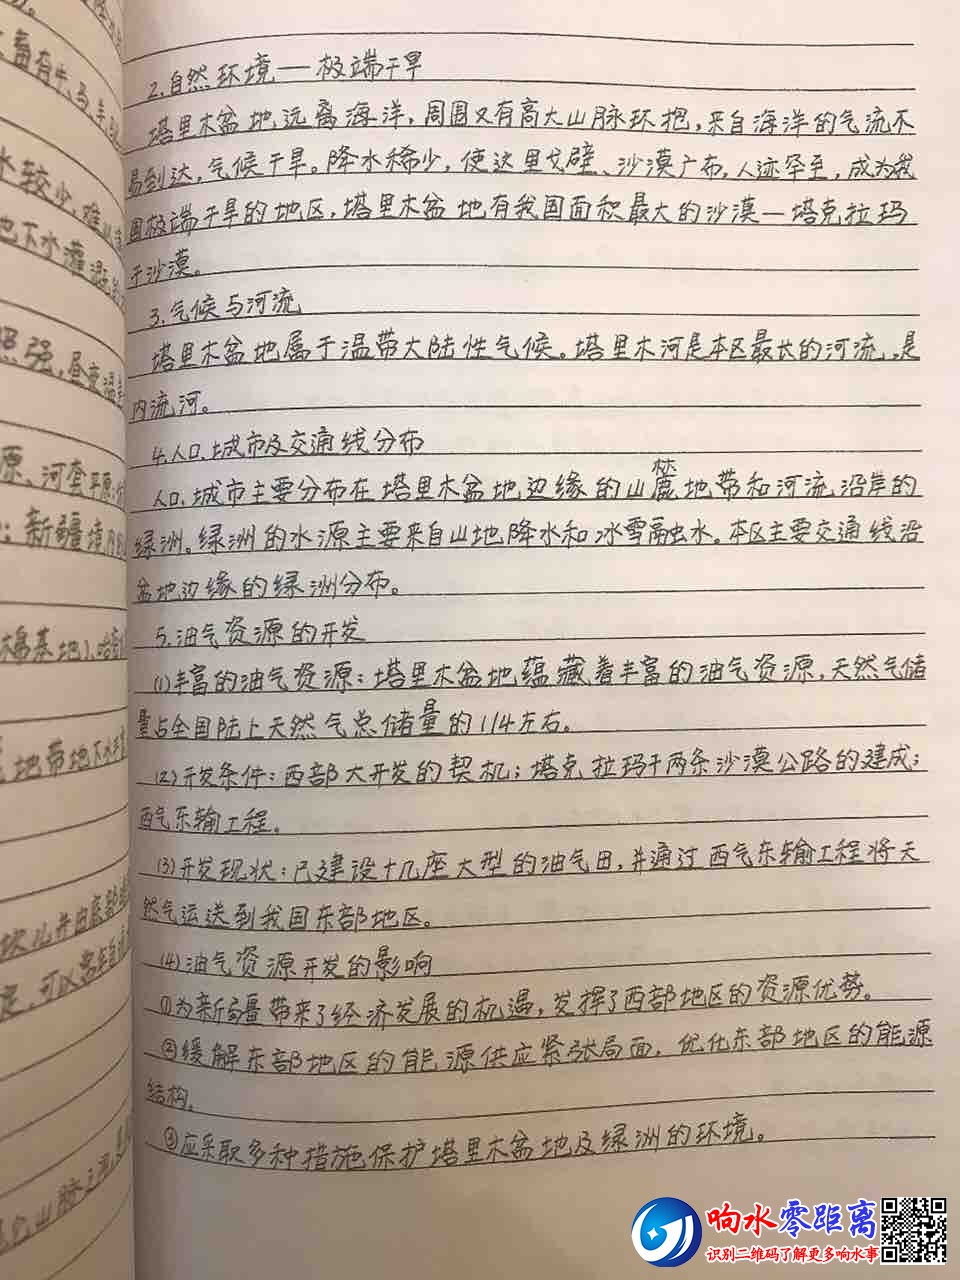 2.自然环境——极端干旱
塔里木盆地远离海洋,周围又有高大山脉环抱,来自海洋的气流不
易到达,气候干旱。降水稀少,使这里戈壁、沙漠广布,人迹罕至,成为我
国极端干旱的地区,塔里木盆地有我国面积最大的沙漠—塔克拉玛
干沙漠。
3.气候与河流
塔里木盆地属于温带大陆性气候。塔里木河是本区最长的河流,是
内流河。
4.人口、城市及交通线分布
人口、城市主要分布在塔里木盆地边缘的山麓地带和河流沿岸的
绿洲。绿洲的水源主要来自山地降水和冰雪融水。本区主要交通线沿
盆地边缘的绿洲分布。
5.油气资源的开发
(1)丰富的油气资源:塔里木盆地蕴藏着丰富的油气资源,天然气储
量占全国陆上天然气总储量的1/4左右。
(2)开发条件:西部大开发的契机;塔克拉玛干两条沙漠公路的建成;
西气东输工程。
(3)开发现状:已建设十几座大型的油气田,并通过西气东输工程将天
然气运送到我国东部地区。
(4)油气资源开发的影响
①为新疆带来了经济发展的机遇,发挥了西部地区的资源优势。
②缓解东部地区的能源供应紧张局面,优化东部地区的能源
结构。
③应采取多种措施保护塔里木盆地及绿洲的环境。
响水零距离
识别二维码了解更多响水事